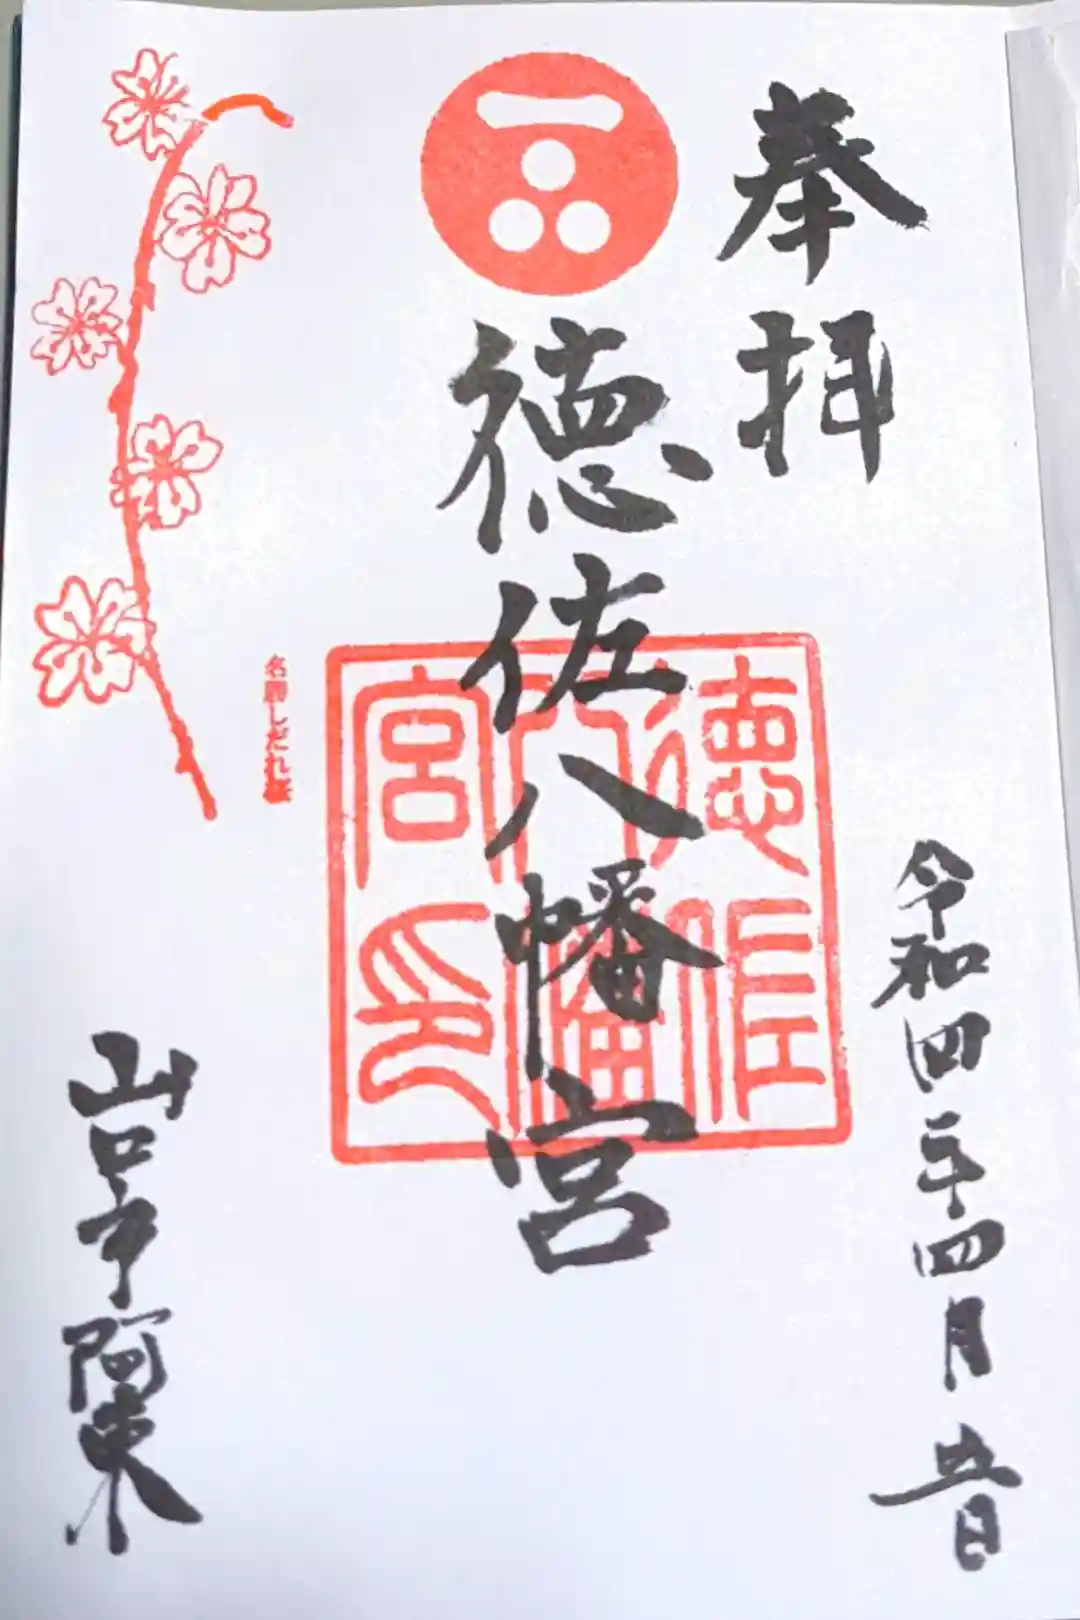 奉拝
徳佐八幡宮
徳佐
八幡
宮印
令和四年四月五日
名勝しだれ桜
山口市阿東